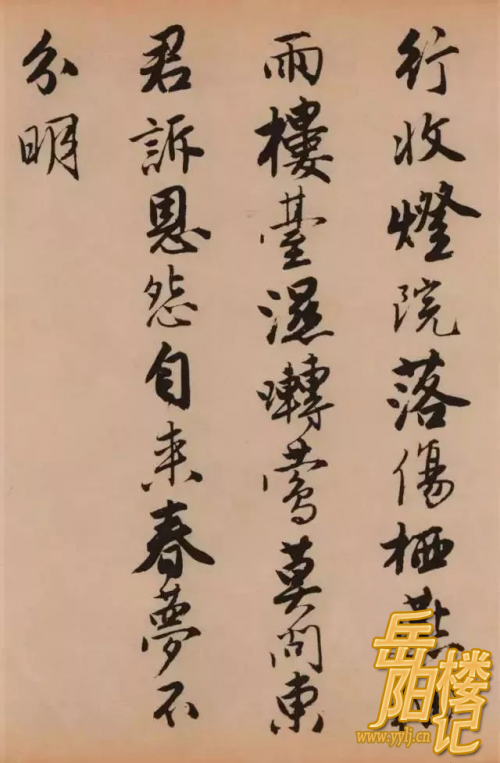 行收燈院落傷栖燕
雨樓臺濕囀鶯莫問東
君訴恩怨自来春夢不
分明
岳阳楼记
www.yylj.cn